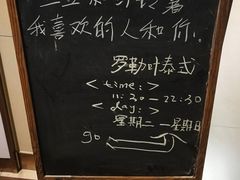 我喜欢的人和你.
罗勒叶泰式
< time: >
11:30 — 22:30
< day: >
星期二 — 星期日
go